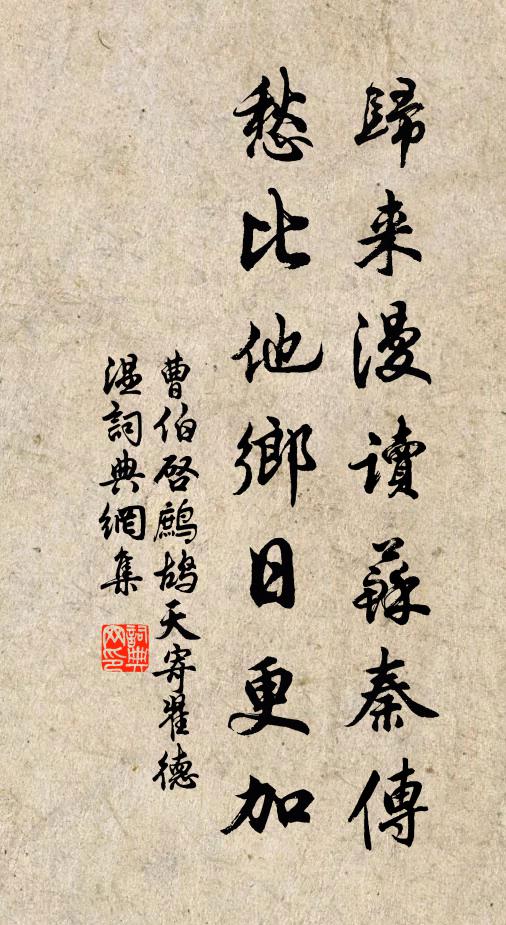 歸来漫讀蘇秦傳
愁比他鄉日更加
曹伯啓鷓鴣天寄翟德
温詞典網集
詞典网印